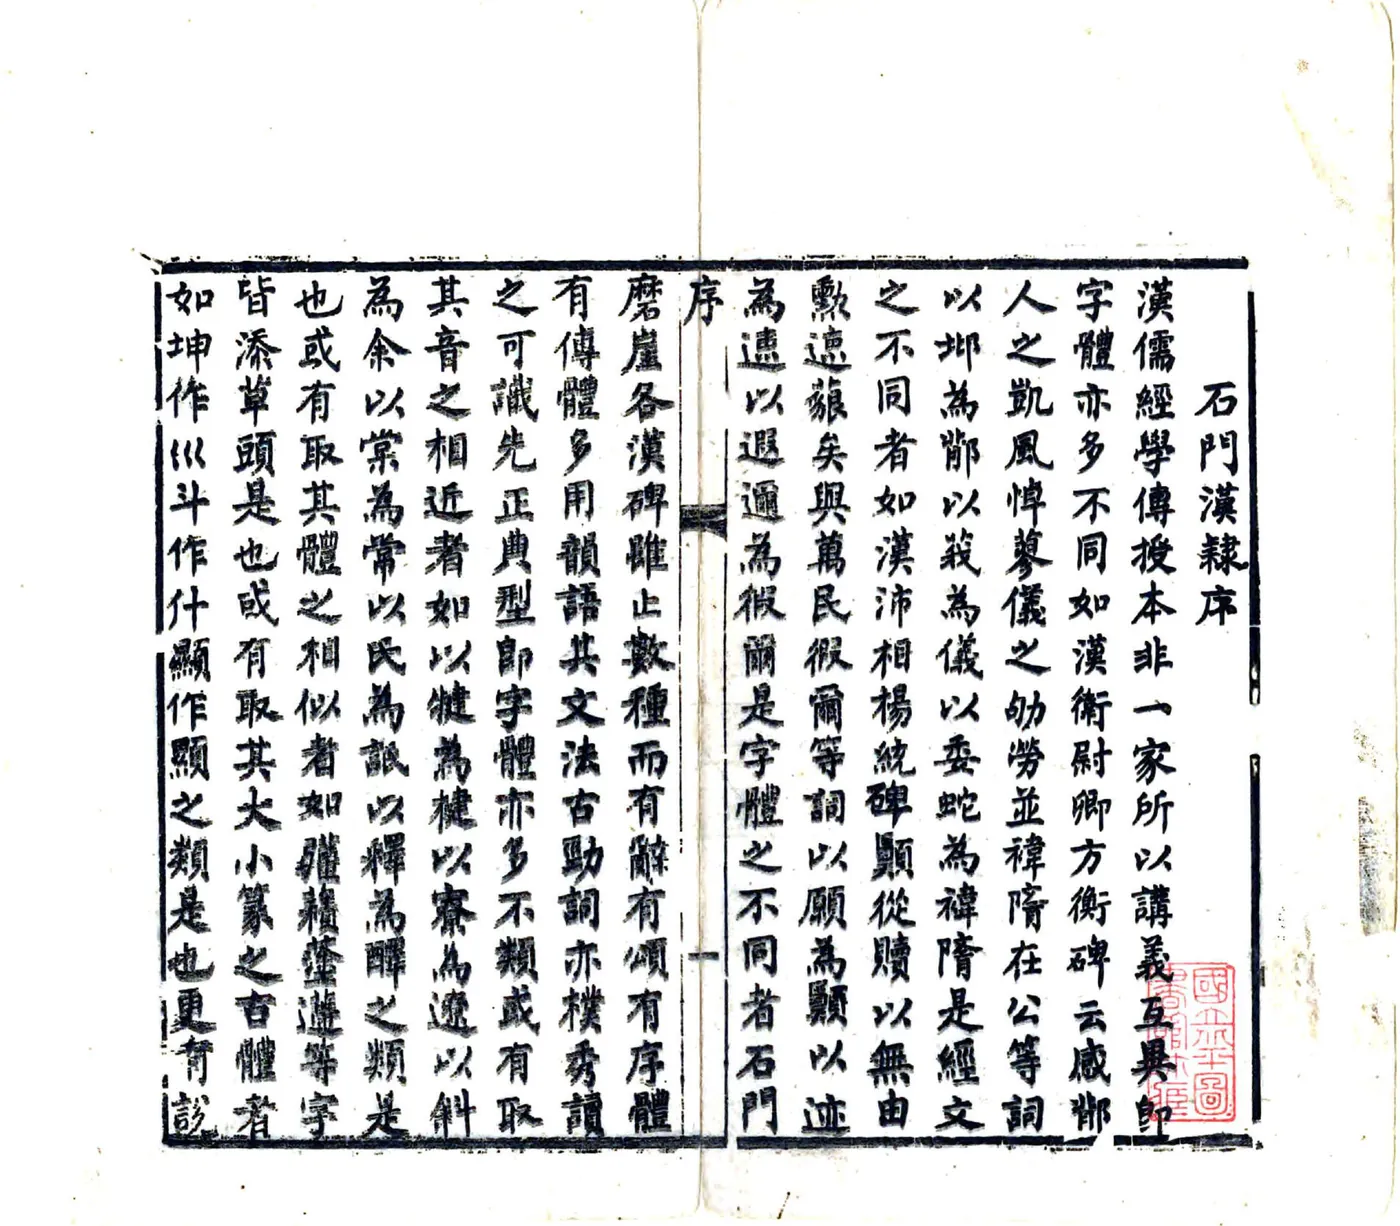 石門漢隸序
漢儒經學傳授本非一家所以講義互異即
字體亦多不同如漢衛尉卿方衡碑云感鄁
人之凱風悼蓼儀之劬勞並禕隋在公等詞
以邶為鄁以莪為儀以委蛇為禕隋是經文
之不同者如漢沛相楊統碑顥從贖以無由
勲遰藐矣與萬民徦爾等詞以願為顥以迹
為遰以遐邇為徦爾是字體之不同者石門
序
一
磨崖各漢碑雖止數種而有辭有頌有序體
有傳體多用韻語其文法古勁詞亦樸秀讀
之可識先正典型即字體亦多不類或有取
其音之相近者如以犍為楗以寮為遼以斜
為余以棠為常以氏為詆以釋為醳之類是
也或有取其體之相似者如彊蘱蓥遰等字
皆添草頭是也或有取其大小篆之古體者
如坤作巛斗作什顯作顕之類是也更有說
國立北平圖
書館收藏